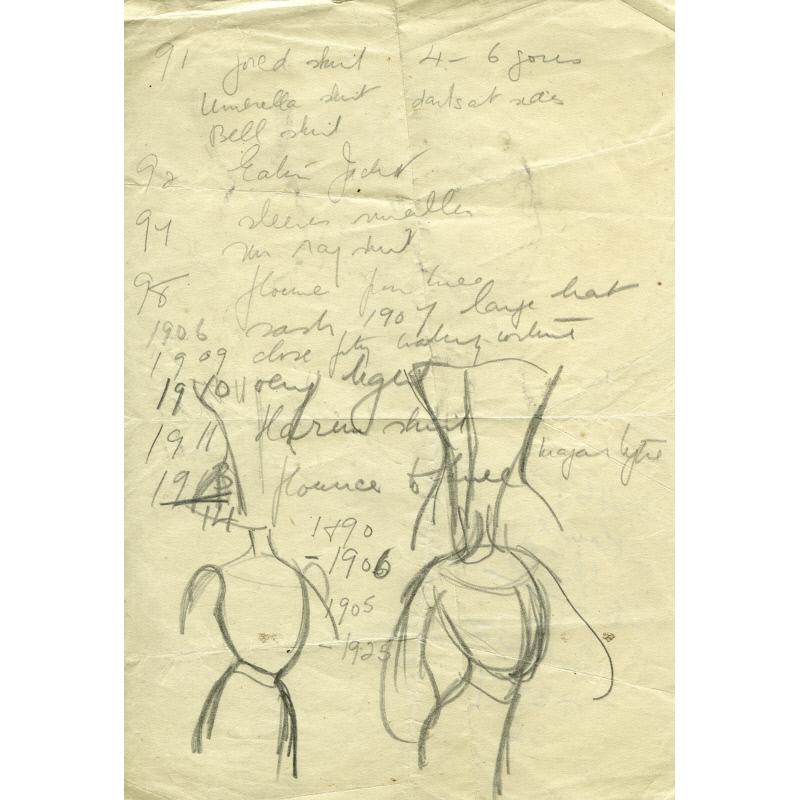 91 gored skirt 4 - 6 gores
Umbrella skirt darts at sides
Bell skirt
92 Eaton Jacket
94 sleeves smaller
sun ray skirt
98 flounce from knee
1906 sash 1907 large hat
1909 close fitting costume
1910 very
1911 Harem skirt
1913 flounces to knee
14
1890
- 1906
1905
- 1925